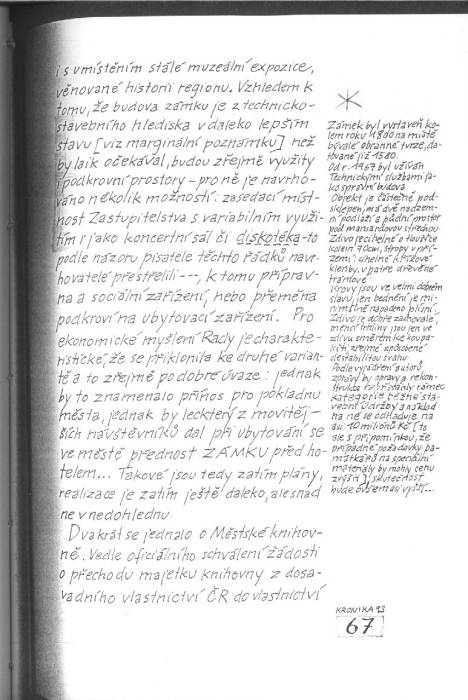 i s umístěním stálé muzeální expozice,
věnované historii regionu. Vzhledem k
tomu, že budova zámku je z technicko-
stavebního hlediska v daleko lepším
stavu [viz marginální poznámku] než
by laik očekával, budou zřejmě využity
i podkrovní prostory - pro ně je navrho-
váno několik možností: zasedací míst-
nost Zastupitelstva s variabilním využi-
tím i jako koncertní sál či diskotéka - to
podle názoru pisatele těchto řádků navr-
hovatelé přestřelili ---, k tomu příprav-
na a sociální zařízení, nebo přeměna
podkroví na ubytovací zařízení. Pro
ekonomické myšlení Rady je charakte-
ristické, že se přiklonila ke druhé varian-
tě a to zřejmě po dobré úvaze: jednak
by to znamenalo přínos pro pokladnu
města, jednak by leckterý z movitěj-
ších návštěvníků dal při ubytování se
ve městě přednost ZÁMKU před ho-
telem... Takové jsou tedy zatím plány,
realizace je zatím ještě daleko, ale snad
ne v nedohlednu.
Dvakrát se jednalo o Městské knihov-
ně. Vedle oficiálního schválení žádosti
o přechodu majetku knihovny z dosa-
vadního vlastnictví ČR do vlastnictví
Zámek byl vystavěn ko-
lem roku 1800 na místě
bývalé obranné tvrze, da-
tované již 1580.
Od r. 1967 byl užíván
Technickými službami ja-
ko správní budova
Objekt je částečně pod-
sklepen, má dvě nadzem-
ní podlaží a půdní prostor
pod mansardovou střechou.
Zdivo je cihelné o tloušťce
kolem 90cm, stropy v pří-
zemí: cihelné křížové
klenby, v patře dřevěné
trámové
Krovy jsou ve velmi dobrém
stavu, jen bednění je mi-
nimálně napadeno plísní.
Zdivo je dobře zachovalé
menší trhliny jsou jen ve
zdivu směrem ke koupa-
lišti zřejmě způsobené
destabilitou svahu
Podle vyjádření autorů
zprávy by opravy a rekon-
strukce nepřesáhly rámec
kategorie běžné sta-
vební údržby a náklad
na ně se odhaduje na
asi 10 milionů Kč [to
ale s připomínkou, že
případné požadavky pa-
mátkářů na speciální
materiály by mohly cenu
zvýšit], skutečnost
bude ovšem asi vyšší...
KRONIKA 93
67